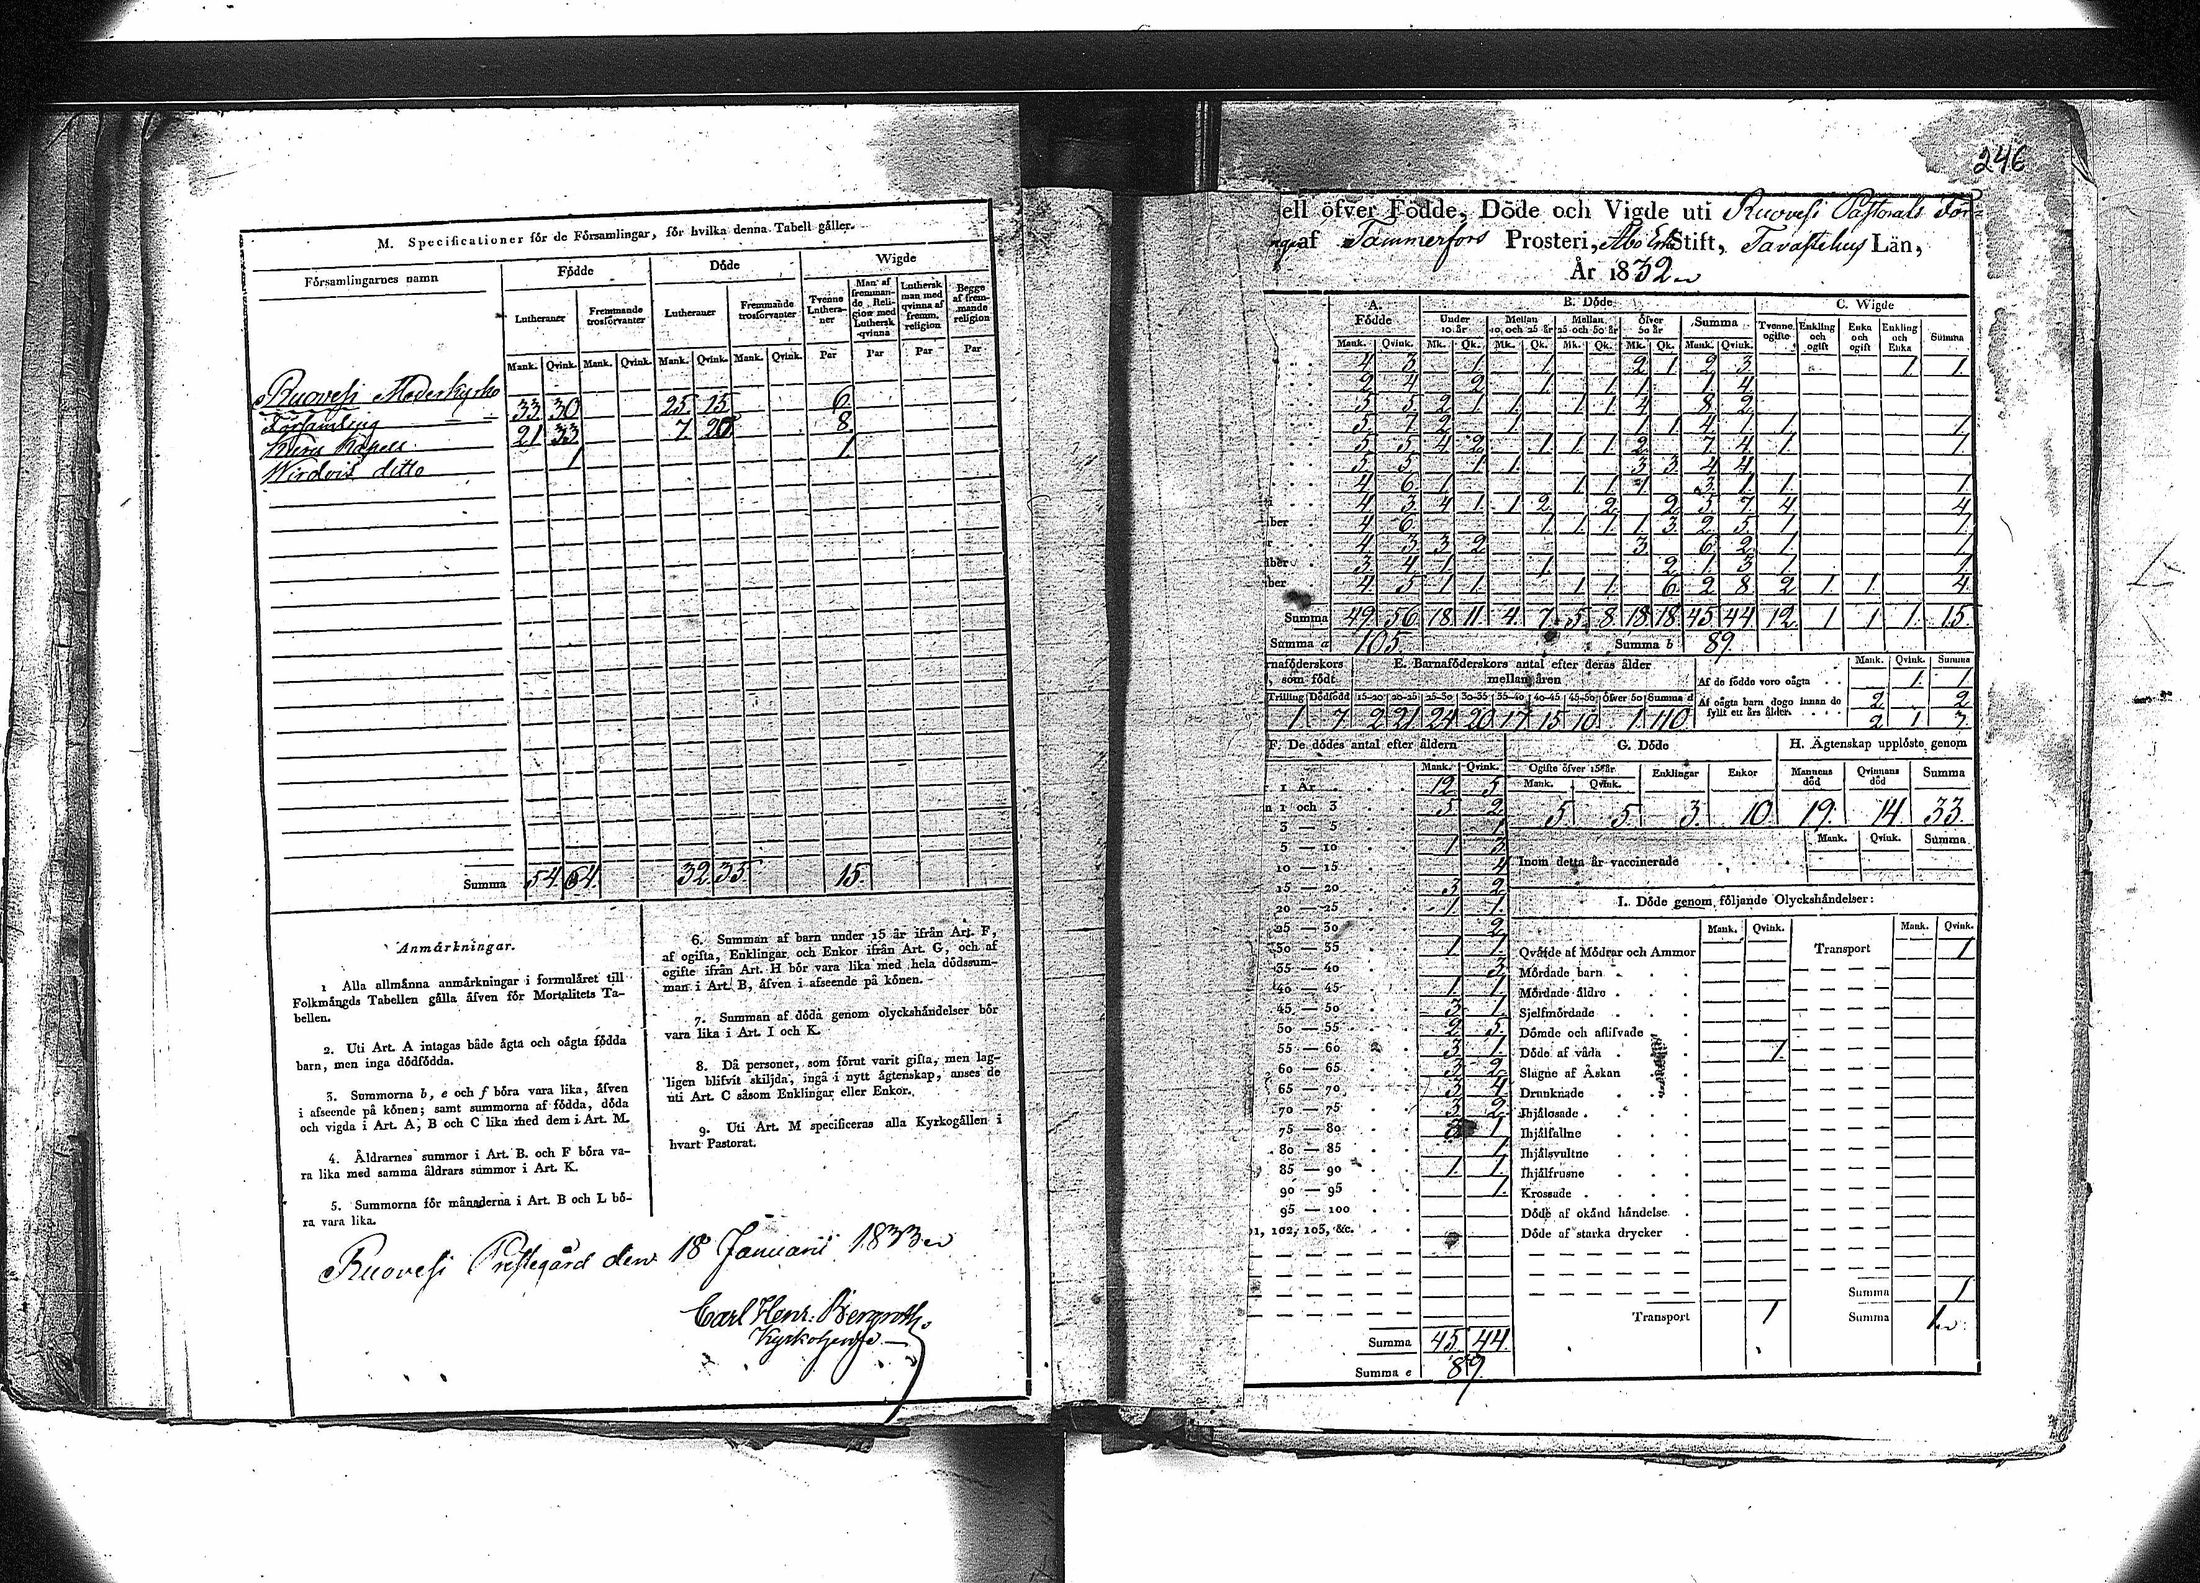 M. Specificationer för de Församlingar, för hvilka denna Tabell gäller.
Församlingarnes namn | Födde | Döde | Wigde
Lutheraner | Fremmande trosförvanter | Lutheraner | Fremmande trosförvanter | Tvenne Lutheraner | Man af fremmande Religion med Luthersk qvinna | Luthersk man med qvinna af fremm. religion | Begge af fremmande religion
Mank. | Qvink. | Mank. | Qvink. | Mank. | Qvink. | Mank. | Qvink. | Par | Par | Par | Par
Ruovesi Moderkyrko
Församling | 33 | 30 | 25 | 15 | 6
Kuru Kapell | 21 | 33 | 7 | 20 | 8
Wirdois ditto | 1 | 1
Summa | 54 | 64 | 32 | 35 | 15.
Anmärkningar.
1 Alla allmänna anmärkningar i formuläret till
Folkmängds Tabellen gälla äfven för Mortalitets Ta-
bellen.
2. Uti Art. A intagas både ägta och oägta födda
barn, men inga dödfödda.
3. Summorna b, e och f böra vara lika, äfven
i afseende på könen; samt summorna af födda, döda
och vigda i Art. A, B och C lika med dem i Art. M.
4. Åldrarnes summor i Art. B. och F böra va-
ra lika med samma åldrars summor i Art. K.
5. Summorna för månaderna i Art. B och L bö-
ra vara lika.
6. Summan af barn under 15 år ifrån Art. F,
af ogifta, Enklingar och Enkor ifrån Art. G, och af
ogifte ifrån Art. H bör vara lika med hela dödssum-
man i Art. B, äfven i afseende på könen.
7. Summan af döda genom olyckshändelser bör
vara lika i Art. I och K.
8. Då personer, som förut varit gifta, men lag-
ligen blifvit skiljda, ingå i nytt ägtenskap, anses de
uti Art. C såsom Enklingar eller Enkor.
9. Uti Art. M specificeras alla Kyrkogällen i
hvart Pastorat.
Ruovesi Prestegård den 18 Januarii 1833
Carl Henr. Bergroth.
Kyrkoherde
246
ell öfver Födde, Döde och Vigde uti Ruovesi Pastorats För-
af Tammerfors Prosteri, Åbo Erke Stift, Tavastehus Län,
År 1832
A. Födde | B. Döde | C. Wigde
Under 10 år | Mellan 10 och 25 år | Mellan 25 och 50 år | Öfver 50 år | Summa | Tvenne ogifte | Enkling och ogift | Enka och ogift | Enkling och Enka | Summa
Mank. | Qvink. | Mk. | Qk. | Mk. | Qk. | Mk. | Qk. | Mk. | Qk. | Mank. | Qvink.
4 | 3 | 1 | 1 | 2 | 1 | 2 | 3 | 1 | 1
2 | 4 | 2 | 1 | 1 | 1 | 1 | 4
5 | 5 | 2 | 1 | 1 | 1 | 1 | 4 | 8 | 2
5 | 7 | 2 | 1 | 1 | 1 | 4 | 1 | 1 | 1
5 | 5 | 4 | 2 | 1 | 1 | 1 | 2 | 7 | 4 | 1 | 1
5 | 5 | 1 | 1 | 3 | 3 | 4 | 4
4 | 6 | 1 | 1 | 1 | 1 | 3 | 1 | 1 | 1
4 | 3 | 4 | 1 | 1 | 2 | 2 | 2 | 5 | 7 | 4 | 4
ber | 4 | 6 | 1 | 1 | 1 | 1 | 3 | 2 | 5 | 1 | 1
r | 4 | 3 | 3 | 2 | 3 | 6 | 2 | 1 | 1
ber | 3 | 4 | 1 | 1 | 2 | 1 | 3 | 1 | 1
ber | 4 | 5 | 1 | 1 | 1 | 1 | 6 | 2 | 8 | 2 | 1 | 1 | 4
Summa | 49 | 56 | 18 | 11 | 4 | 7 | 5 | 8 | 18 | 18 | 45 | 44 | 12 | 1 | 1 | 1 | 15
Summa a | 105. | Summa b | 89.
rnaföderskors, som födt | E. Barnaföderskors antal efter deras ålder mellan åren | Mank. | Qvink. | Summa
Trilling | Dödfödd | 15–20 | 20–25 | 25–30 | 30–35 | 35–40 | 40–45 | 45–50 | Öfver 50 | Summa d
1 | 7 | 2 | 21 | 24 | 20 | 17 | 15 | 10 | 1 | 110
Af de födde voro oägta | 1 | 1
Af oägta barn dogo innan de fyllt ett års ålder | 2 | 2
2 | 1 | 3
F. De dödes antal efter åldern
Mank. | Qvink.
1 År | 12 | 5
n 1 och 3 | 5 | 2
3 — 5 | 1
5 — 10 | 1 | 3
10 — 15 | 4
15 — 20 | 3 | 2
20 — 25 | 1 | 1
25 — 30 | 2
30 — 35 | 1 | 1
35 — 40 | 3
40 — 45 | 1 | 1
45 — 50 | 3 | 1
50 — 55 | 2 | 5
55 — 60 | 3 | 1
60 — 65 | 3 | 2
65 — 70 | 3 | 4
70 — 75 | 3 | 2
75 — 80 | 1
80 — 85 | 1
85 — 90 | 1 | 1
90 — 95 | 1
95 — 100
101, 102, 103, &c.
Summa | 45 | 44
Summa e | 89.
G. Döde | H. Ägtenskap upplöste genom
Ogifte öfver 15 år | Enklingar | Enkor | Mannens död | Qvinnans död | Summa
Mank. | Qvink.
5 | 5 | 3 | 10 | 19 | 14 | 33
Mank. | Qvink. | Summa
Inom detta år vaccinerade
I. Döde genom följande Olyckshändelser:
Mank. | Qvink. | Mank. | Qvink.
Qväfde af Mödrar och Ammor | Transport | 1
Mördade barn
Mördade äldre
Sjelfmördade
Dömde och aflifvade
Döde af våda | 1
Slagne af Åskan
Drunknade
Ihjälosade
Ihjälfallne
Ihjälsvultne
Ihjälfrusne
Krossade
Döde af okänd händelse
Döde af starka drycker
Summa | 1
Transport | 1 | Summa | 1